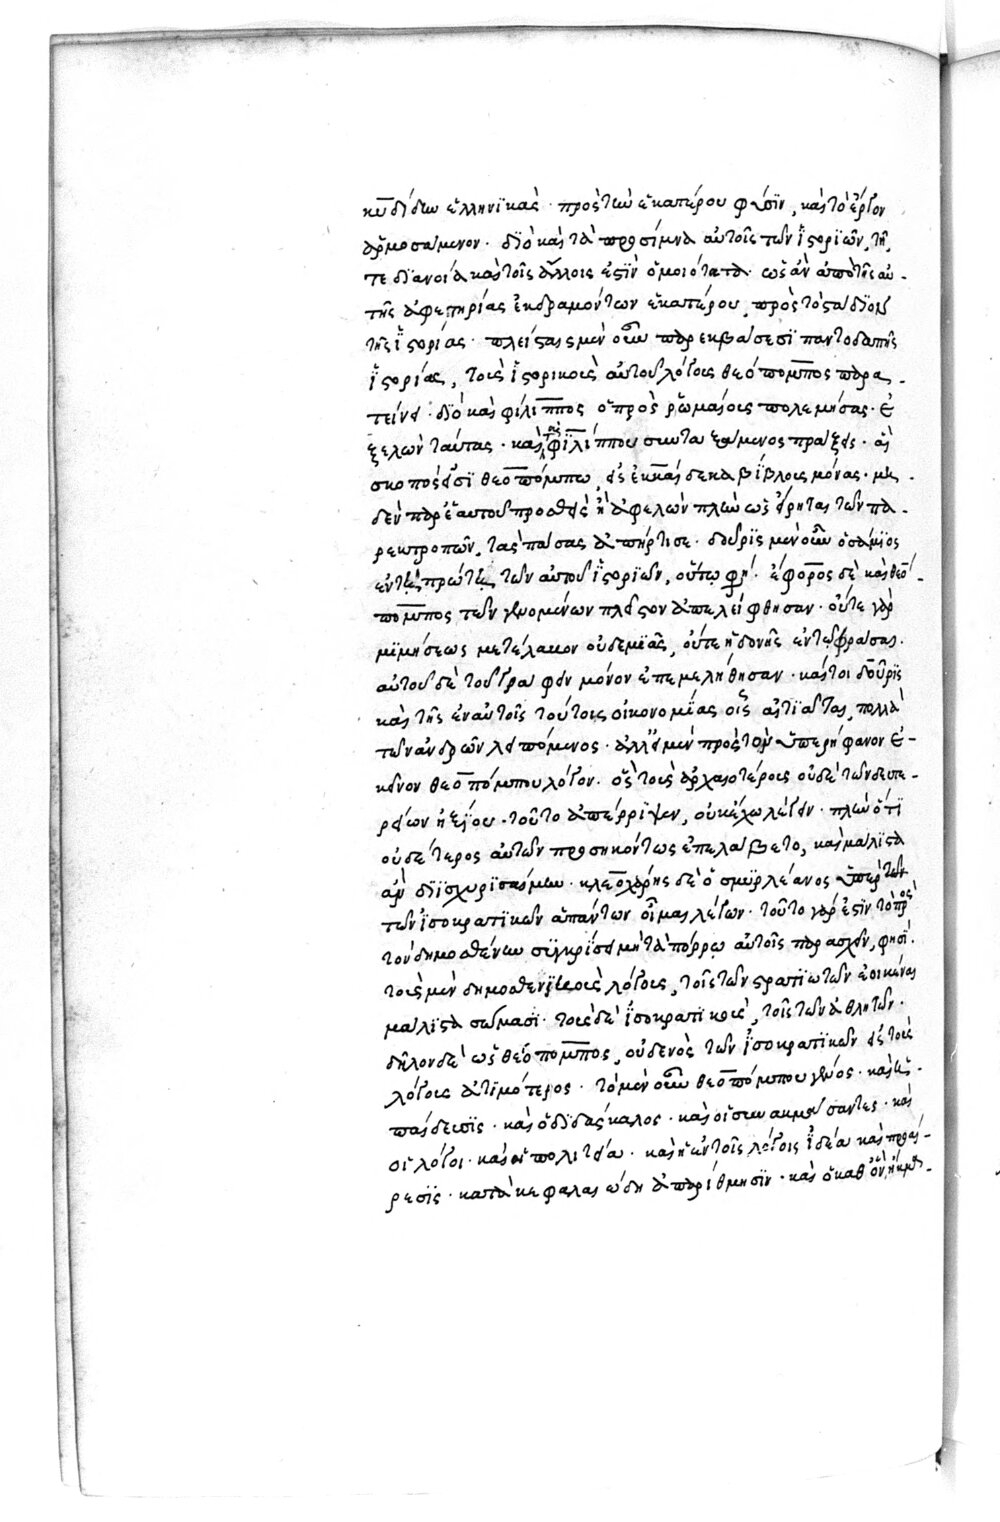 κυδίδου ἑλληνϊκὰς · πρὸς τὴν ἑκατέρου φύσϊν, καὶ τὸ ἔργον
ἁρμοσάμενον · δϊὸ καὶ τὰ προοίμια αὐτοῖς τῶν ἱστορϊῶν, τῇ
τε δϊανοίᾳ καὶ τοῖς ἄλλοις ἐστὶν ὁμοιότατα · ὡς ἂν ἀπὸ τῆς αὐ-
τῆς ἀφετηρίας ἐκδραμόντων ἑκατέρου, πρὸς τὸ στάδϊον
τῆς ἱστορίας · πλείσταις μὲν οὖν παρεκβάσεσϊ παντοδαπῆς
ἱστορίας, τοὺς ἱστορικοὺς αὐτοῦ λόγους θεόπομπος παρα-
τείνει · δϊὸ καὶ φίλιππος ὁ πρὸς ῥωμαίους πολεμήσας · ἐ
ξελὼν ταύτας · καὶ τὰς φϊλίππου συνταξάμενος πράξεις · αἳ
σκοπός εἰσϊ θεοπόμπω, εἰς ἑκκαίδεκα βίβλους μόνας · μη-
δὲν παρ' ἑαυτοῦ προσθεὶς ἢ ἀφελὼν πλὴν ὡς εἴρηται τῶν πα-
ρεκτροπῶν, τὰς πάσας ἀπήρτισε · δοῦρϊς μὲν οὖν ὁ σάμϊος
ἐν τῇ πρώτῃ τῶν αὐτοῦ ἱστορϊῶν, οὕτω φησί · ἔφορος δὲ καὶ θεό-
πομπος τῶν γενομένων πλεῖστον ἀπελείφθησαν · οὔτε γὰρ
μϊμήσεως μετέλαβον οὐδεμϊᾶς, οὔτε ἡδονῆς ἐν τῶ φράσαι ·
αὐτοῦ δὲ τοῦ γράφειν μόνον ἐπεμελήθησαν · καίτοι δοῦρϊς
καὶ τῆς ἐν αὐτοῖς τούτοις οἰκονομίας οἷς αἰτϊᾶται, πολλὰ
τῶν ἀνδρῶν λειπόμενος · ἀλλ' εἰ μὲν πρὸς τὸν ὑπερήφανον ἐ-
κεῖνον θεοπόμπου λόγον · ὃς τοὺς ἀρχαιοτέρους οὐδὲ τῶν δευτε-
ρείων ἠξίου · τοῦτο ἀπέρριψεν, οὐκ ἔχω λέγειν · πλὴν ὅτϊ
οὐδέτερος αὐτῶν προσηκόντως ἐπελάβετο, καὶ μάλϊστα
ἂν δϊϊσχυρϊσαίμην · κλεοχάρης δὲ ὁ σμυρλεάνος ὑπὲρ τῶν
τῶν ἰσοκρατϊκῶν ἁπάντων οἶμαι λέγων · τοῦτο γάρ ἐστϊν τὸ πρὸς
τὸν δημοσθένην σϋγκρίσει μὴ τὰ πόρρω αὐτοῖς παρασχεῖν, φησί ·
τοὺς μὲν δημοσθενϊκοὺς λόγους, τοῖς τῶν στρατϊωτῶν ἐοικέναι
μάλϊστα σώμασϊ · τοὺς δὲ ἰσοκρατϊκοὺς, τοῖς τῶν ἀθλητῶν ·
δῆλον δὲ ὡς θεόπομπος, οὐδενὸς τῶν ἰσοκρατϊκῶν εἰς τοὺς
λόγους ἀτϊμότερος · τὸ μὲν οὖν θεοπόμπου γένος · καὶ ἡ
παίδευσϊς · καὶ ὁ δϊδάσκαλος · καὶ οἱ συνακμάσαντες · καὶ
οἱ λόγοι · καὶ ἡ πολιτεία · καὶ ἡ ἐν τοῖς λόγοις ἰδέα καὶ προαί-
ρεσϊς · κατὰ κεφάλαιον ὧδε ἀπαρίθμησϊν · καὶ ὁ καθ' ὃν ἤκμα-